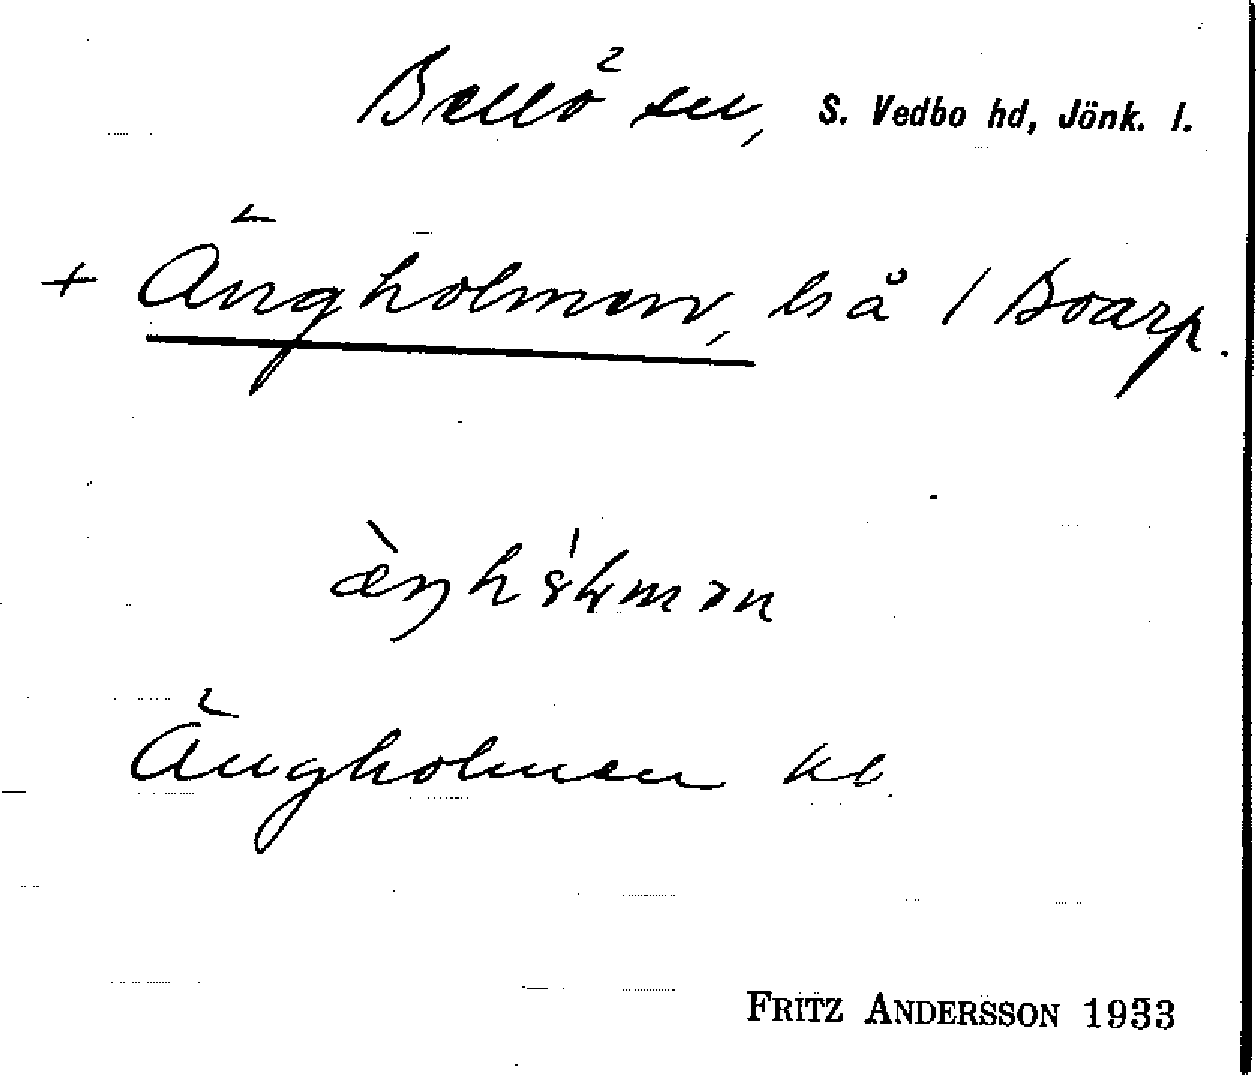 Bellö sn, S. Vedbo hd, Jönk. l.
+ Ängholmen, ls å / Boarp.
Ängholmen kl.
FRITZ ANDERSSON 1933